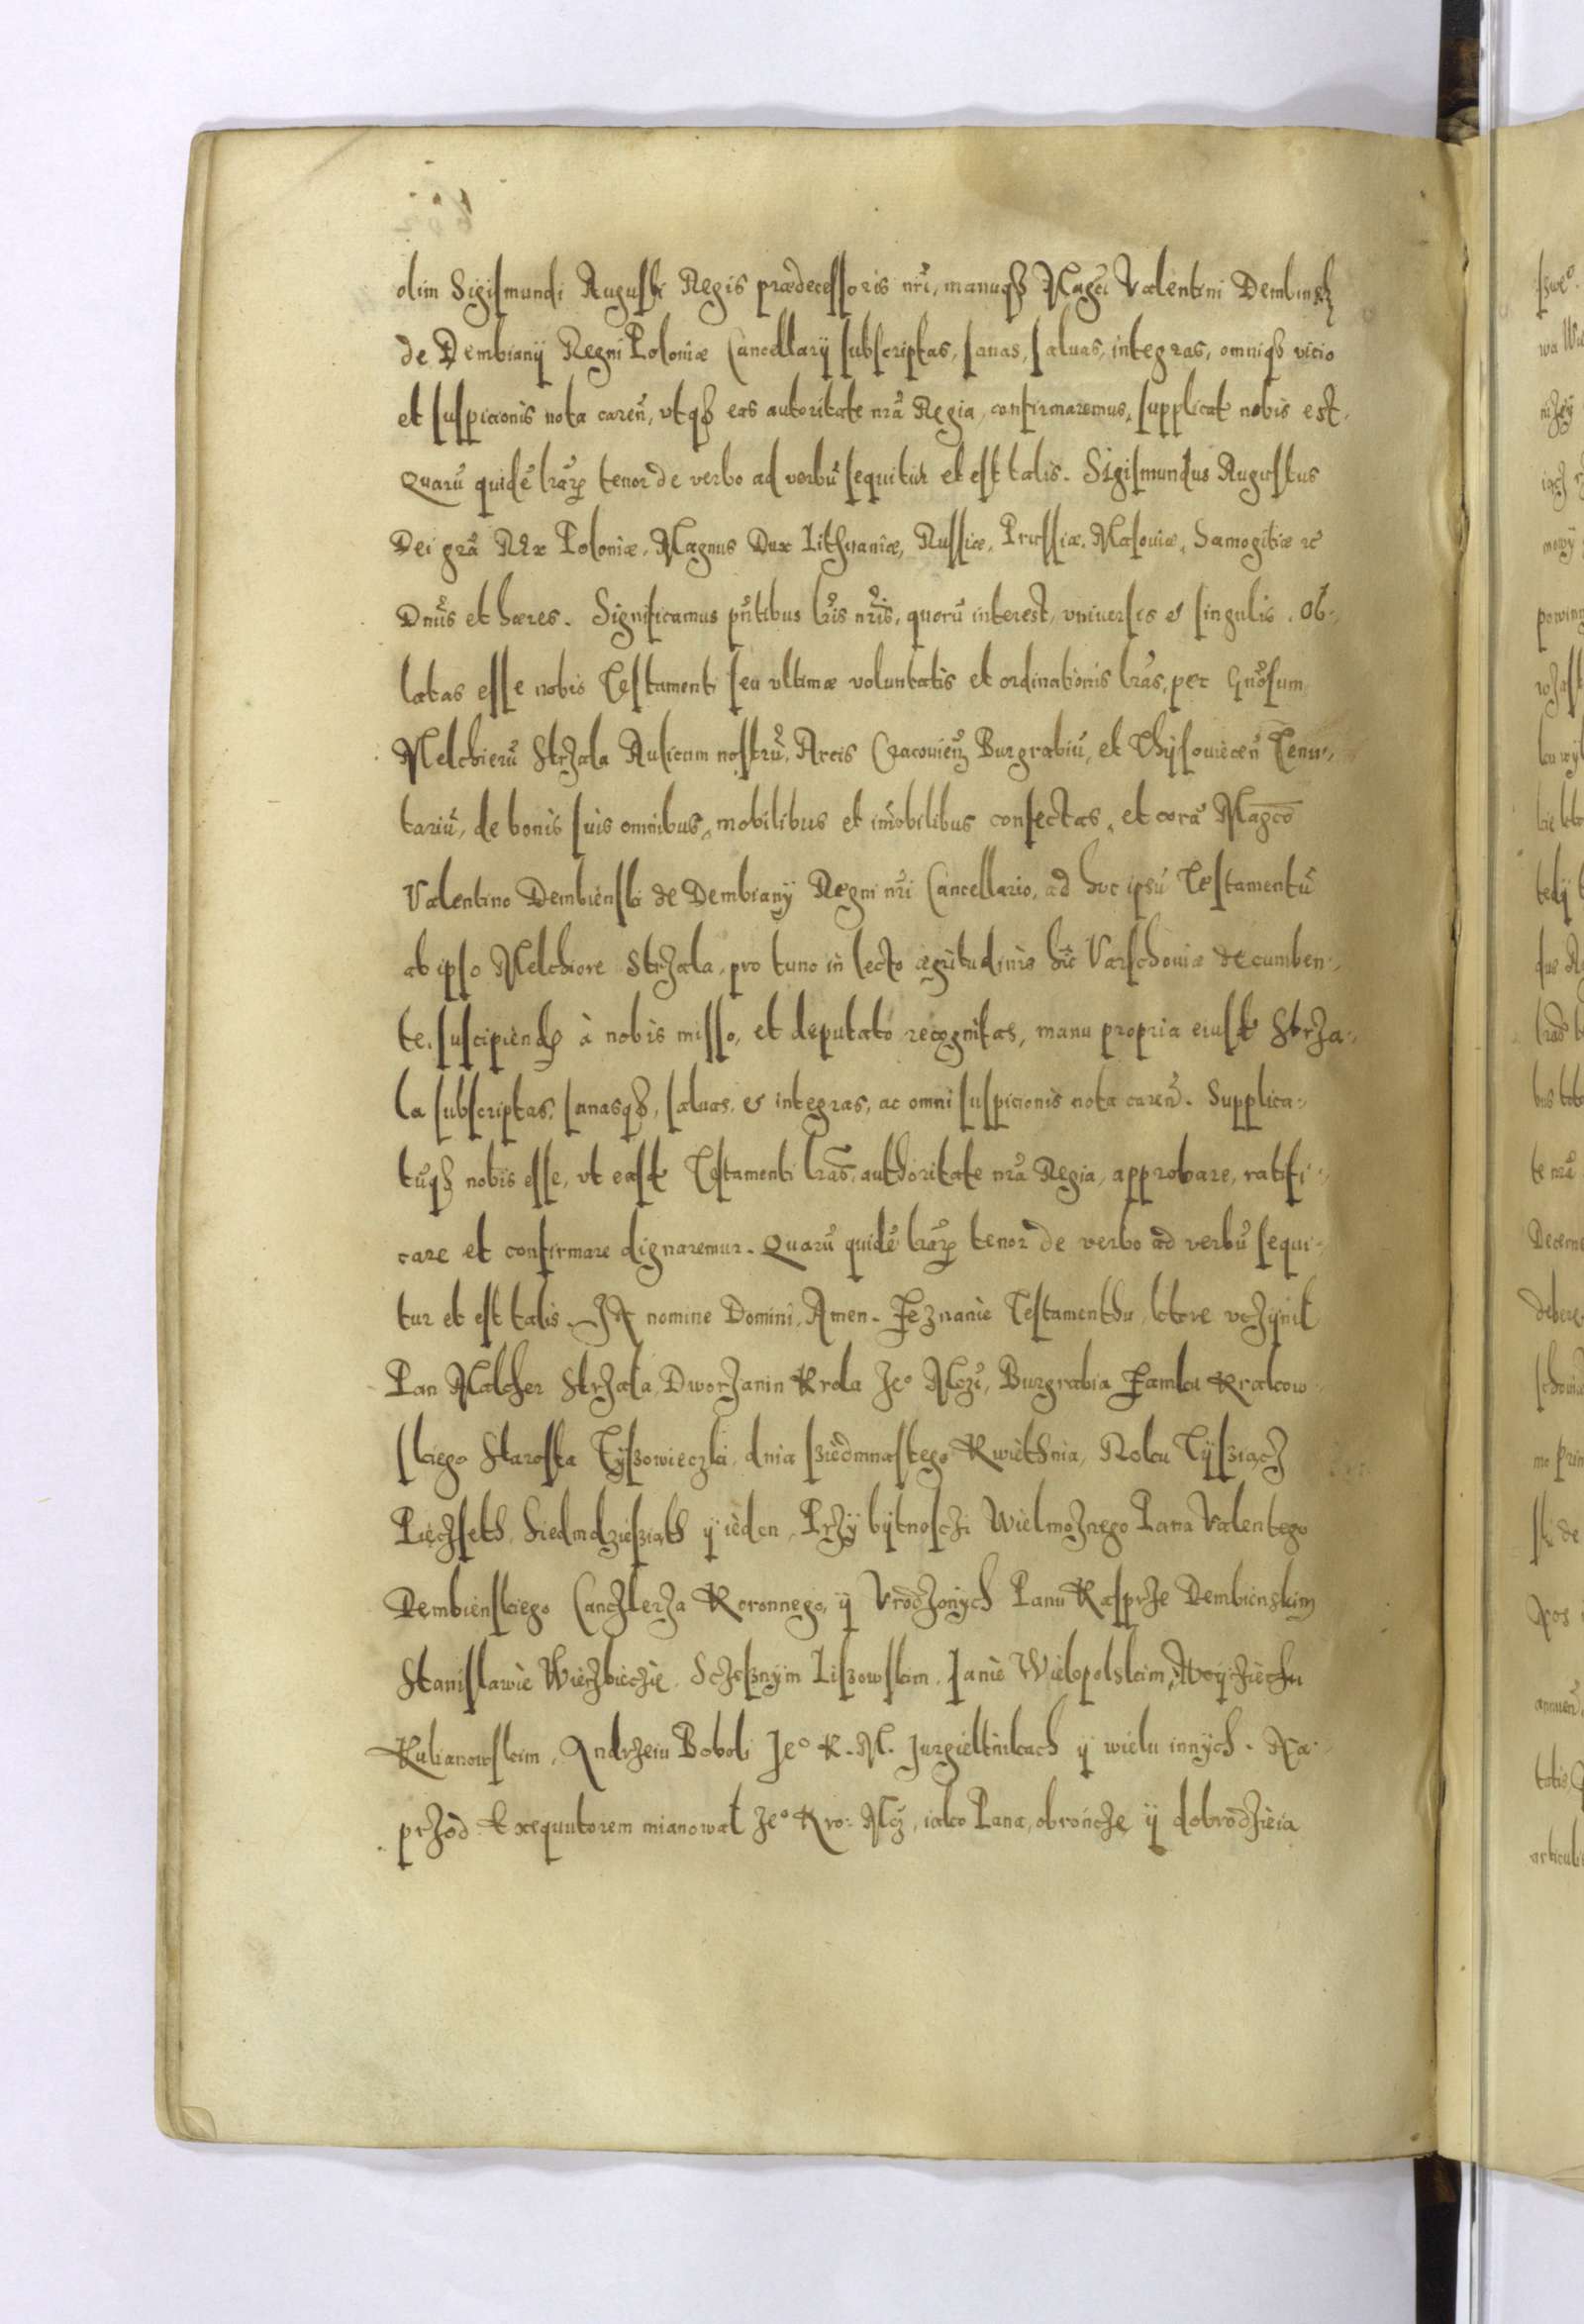 olim Sigismundi Augusti Regis prædecessoris nri, manuqz Magci Valentini Dembinsk
de Dembianÿ Regni Poloniæ Cancellarÿ subscriptas, sanas, saluas, integras, omniqz vicio
et suspicionis nota careñ, vtqz eas autoritate nrã Regia confirmaremus, supplicat nobis est.
Quarũ quidẽ lrarꝝ tenor de verbo ad verbũ sequitur et est talis. Sigismundus Augustus
Dei grã Rex Poloniæ, Magnus Dux Lithuaniæ, Russiæ, Prussiæ, Masouiæ, Samogitiæ ꝛc
Dnũs et hæres. Significamus pñtibus lris nris, quorũ interest, vniuersis & singulis. Ob-
latas esse nobis Testamenti seu vltimæ voluntatis et ordinationis lras, per Gnosum
Melchierũ Strzala Aulicum nostrũ, Arcis Cracovieñ Burgrabiũ, et Thÿsouieceñ Tenu-
tariũ, de bonis suis omnibus, mobilibus et im̃obilibus confectas, et corã Magco
Valentino Dembienski de Dembianÿ Regni nri Cancellario, ad hoc ipsũ Testamentũ
ab ipso Melchiore Strzala, pro tunc in lecto ægritudinis hic Varschouiæ decumben-
te, suscipiendꝝ à nobis misso, et deputato recognitas, manu propria eiusd Strza-
la subscriptas, sanasqz, saluas, & integras, ac omni suspicionis nota careñ. Supplica-
tũqz nobis esse, vt easd Testamenti lras, authoritate nrã Regia, approbare, ratifi-
care et confirmare dignaremur. Quarũ quidẽ lrarꝝ tenor de verbo ad verbũ sequi-
tur et est talis. IN nomine Domini, Amen. Zeznanie Testamenthu, ktore vczÿnil
Pan Malcher Strzala, Dworzanin Krola Jeo Mczi, Burgrabia Zamku Krakow
skiego Starosta Tÿszowieczki, dnia sziedmnastego Kwiethnia, Roku Tÿsziącz
Pięczseth, Siedmdziesziąth ÿ ieden, Przÿ bÿtnosczi Wielmoznego Pana Valentego
Dembienskiego Canczlerza Koronnego, ÿ Vrodzonÿch Panu Kasprze Dembienskim
Stanislawie Wierzbieczie, Sczesznÿm Liszowskim, Janie Wielopolskim, Woÿcziechu
Kulianowskim, Andrzeiu Boboli Jeo K. M. Jurgieltnikach ÿ wielu innÿch. Na-
przod Exequutorem mianował Jeo Kro: Mcz, iako Pana, obronczę ÿ dobrodzieia